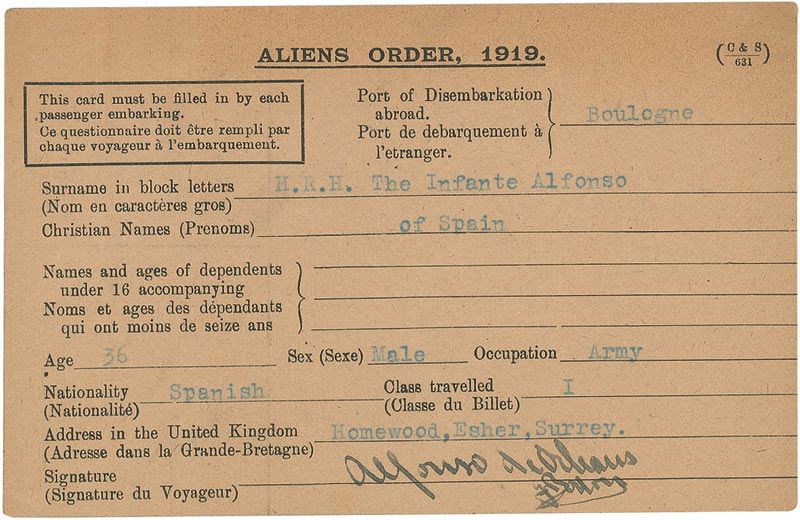 ALIENS ORDER, 1919.
(C & S
631)
This card must be filled in by each
passenger embarking.
Ce questionnaire doit être rempli par
chaque voyageur à l'embarquement.
Port of Disembarkation
abroad.
Port de debarquement à
l'etranger.
Boulogne
Surname in block letters H.R.H. The Infante Alfonso
(Nom en caractères gros)
Christian Names (Prenoms) of Spain
Names and ages of dependents
under 16 accompanying
Noms et ages des dépendants
qui ont moins de seize ans
Age 36 Sex (Sexe) Male Occupation Army
Nationality Spanish Class travelled I
(Nationalité) (Classe du Billet)
Address in the United Kingdom Homewood,Esher,Surrey.
(Adresse dans la Grande-Bretagne)
Signature Alfonso de Orleans
(Signature du Voyageur)